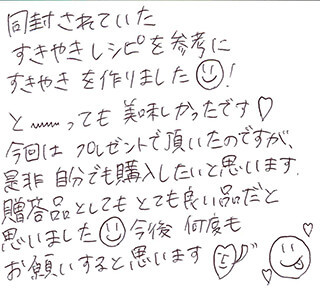 同封されていた
すきやきレシピを参考に
すきやき を作りました!
と〰っても 美味しかったです♡
今回は プレゼントで頂いたのですが、
是非 自分でも購入したいと思います.
贈答品としても とても良い品だと
思いました 今後 何度も
お願いすると思います